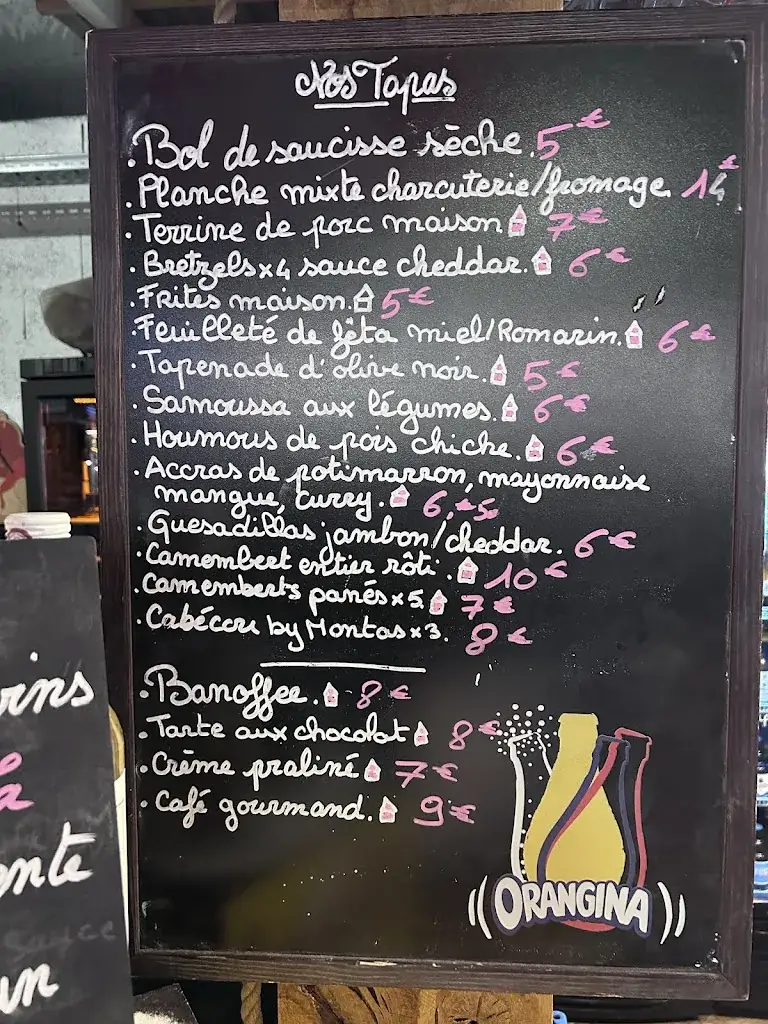 Nos Tapas
. Bol de saucisse sèche. 5€
. Planche mixte charcuterie/fromage. 14€
. Terrine de porc maison 7€
. Bretzels x4 sauce cheddar. 6€
. Frites maison. 5€
. Feuilleté de fêta miel/Romarin. 6€
. Tapenade d'olive noir. 5€
. Samoussa aux légumes. 6€
. Houmous de pois chiche. 6€
. Accras de potimarron, mayonnaise
mangue, curry. 6,€5
. Quesadillas jambon/cheddar. 6€
. Camembert entier rôti. 10€
. Camemberts panés x5. 7€
. Cabécou by Montas x3. 8€
. Banoffee. 8€
. Tarte aux chocolat 8€
. Crème praliné 7€
. Café gourmand. 9€
ORANGINA
ente
sauce